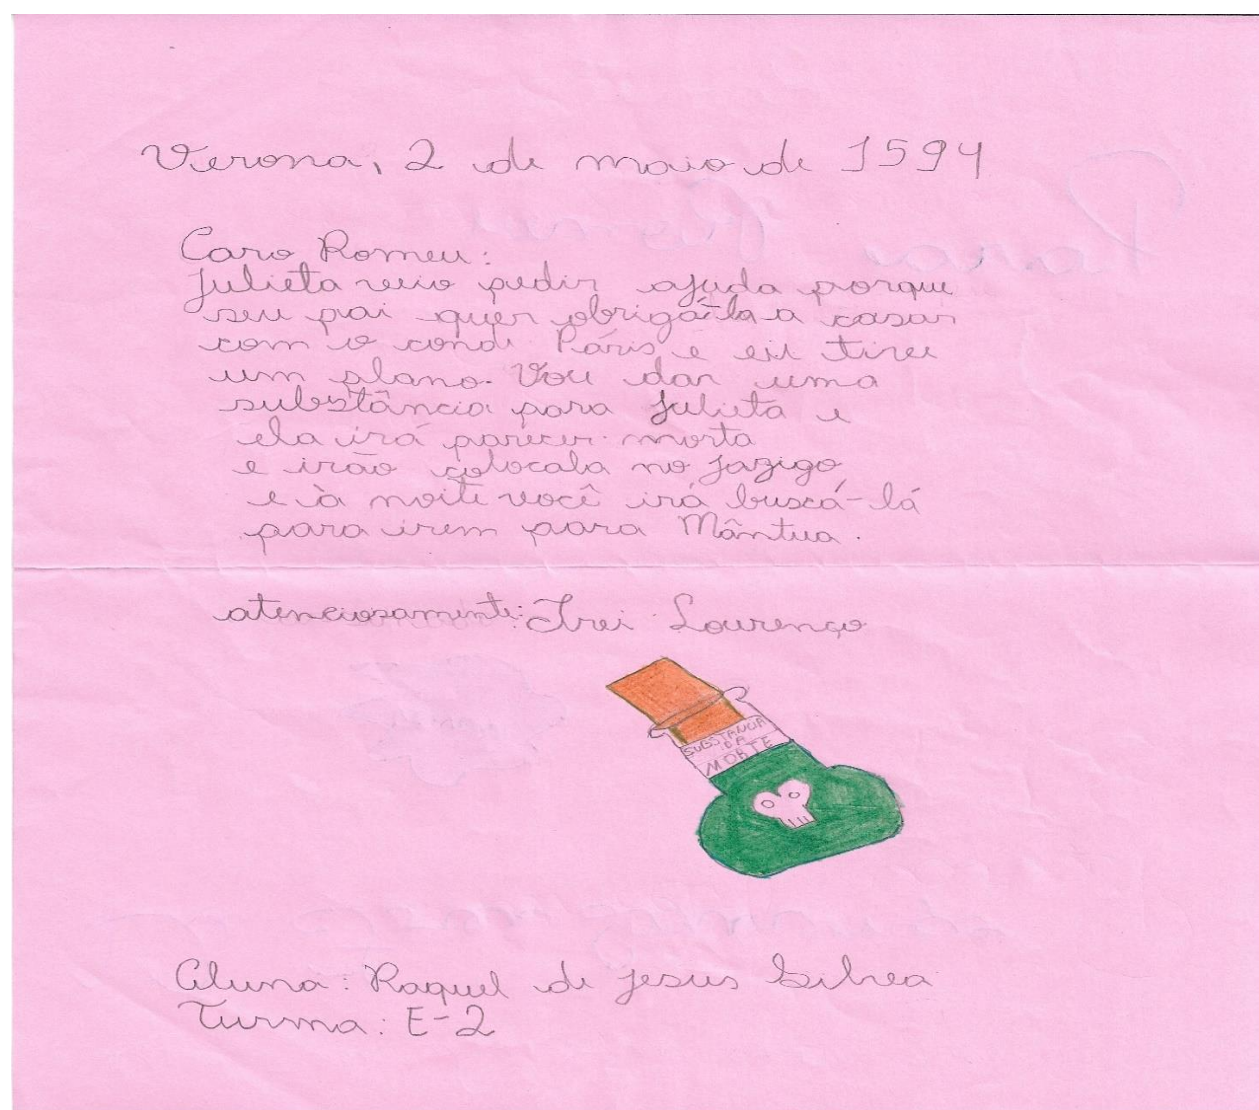 Verona, 2 de maio de 1594
Caro Romeu:
Julieta veio pedir ajuda porque
seu pai quer obrigá-la a casar
com o conde Páris e eu tirei
um plano. Vou dar uma
substância para Julieta e
ela irá parecer morta
e irão colocala no jazigo
e à noite você irá buscá-lá
para irem para Mântua.
atenciosamente: Frei Lourenço
SUBSTANCIA
DA
MORTE
Aluna: Raquel de Jesus
Turma: E-2